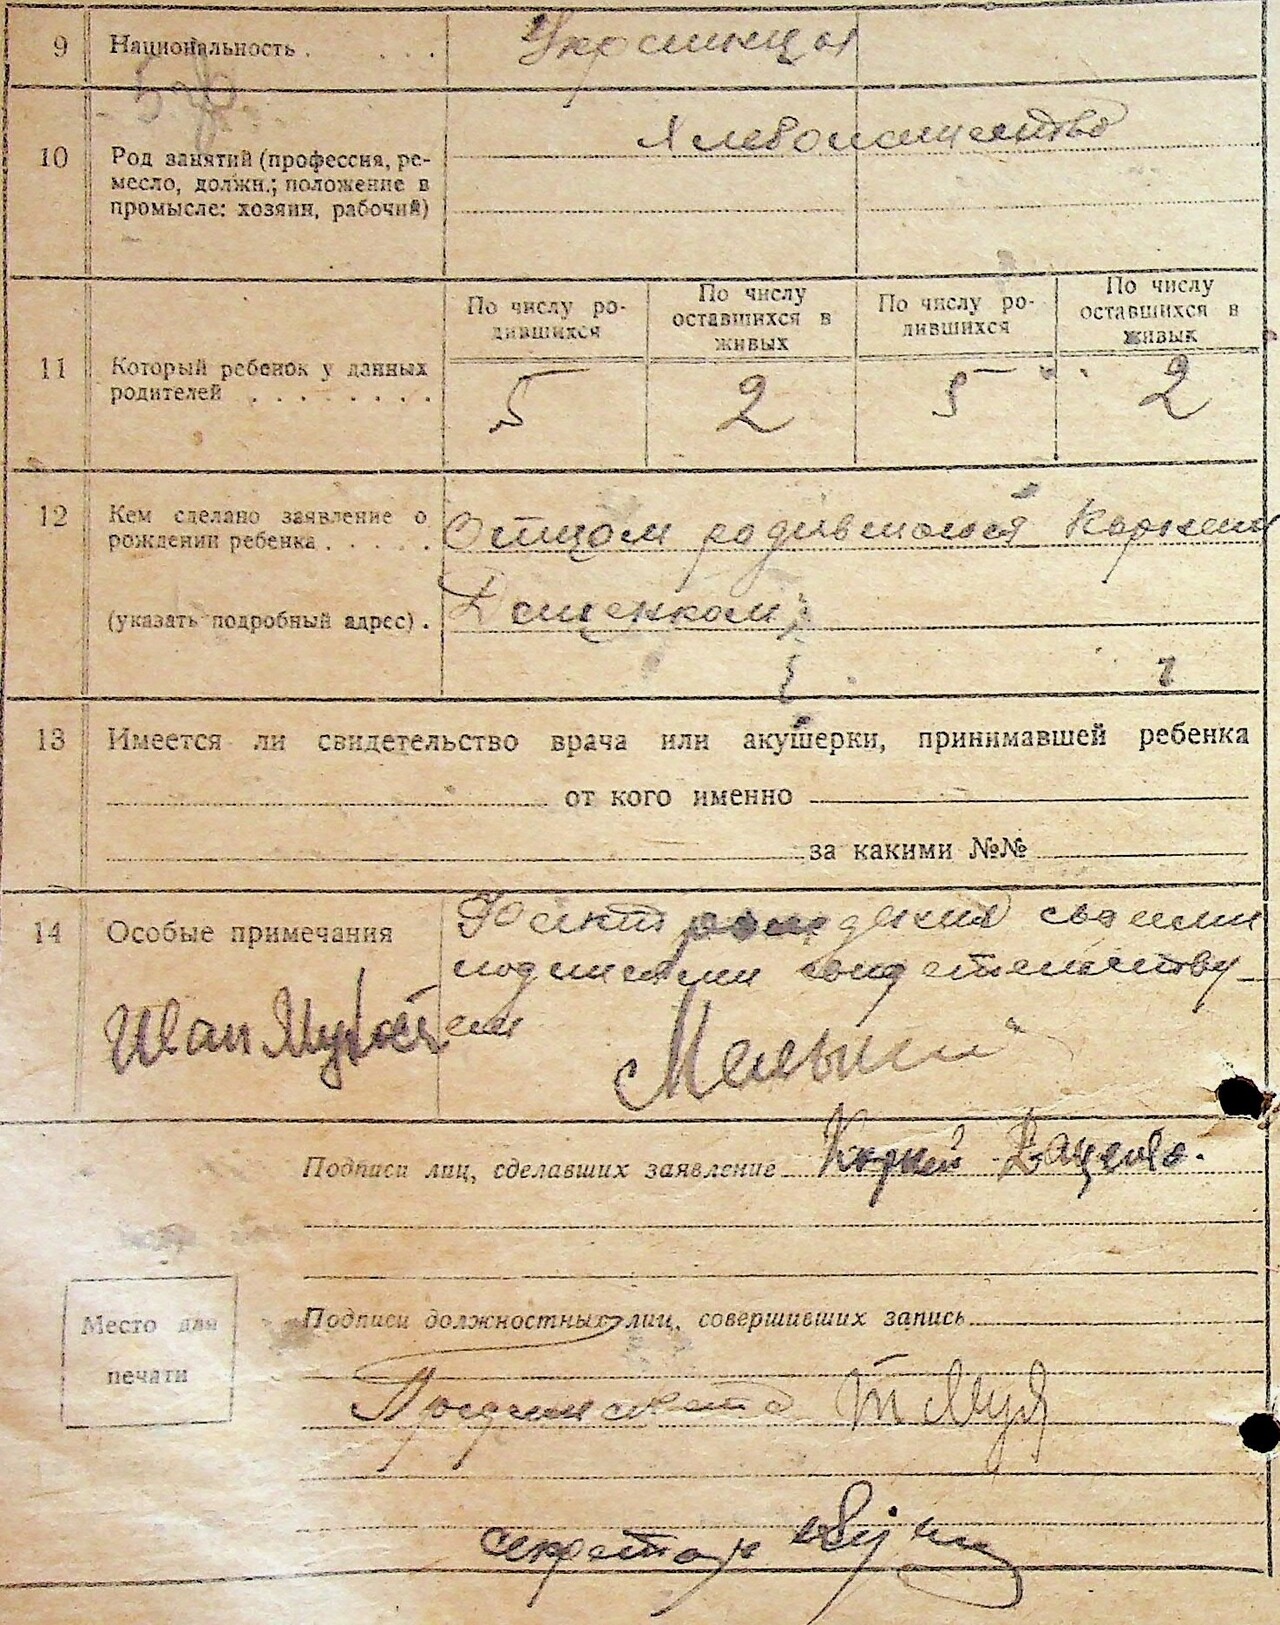 9 Национальность . . . . Украинцы
10 Род занятий (профессия, ре-
месло, должн.; положение в
промысле: хозяин, рабочий)
Хлебопашество
По числу ро-
дившихся
По числу
оставшихся в
живых
По числу ро-
дившихся
По числу
оставшихся в
живых
11 Который ребенок у данных
родителей . . . . . . . .
5 2 5 2
12 Кем сделано заявление о
рождении ребенка . . . . .
(указать подробный адрес) .
Отцом родившегося Корнеем
Даценком
13 Имеется ли свидетельство врача или акушерки, принимавшей ребенка
от кого именно
за какими №№
14 Особые примечания
Факт рождения своими
подписями свидетельству
ем
Иван
Подписи лиц, сделавших заявление Корней Даценко.
Место для
печати
Подписи должностных лиц, совершивших запись
Предсельсовета
секретарь